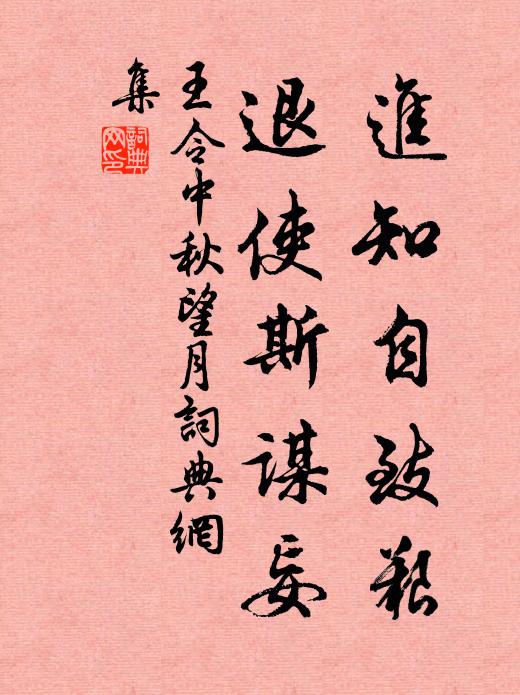 進知自致艱
退使斯謀妄
王令中秋望月詞典網
集
詞典
网印